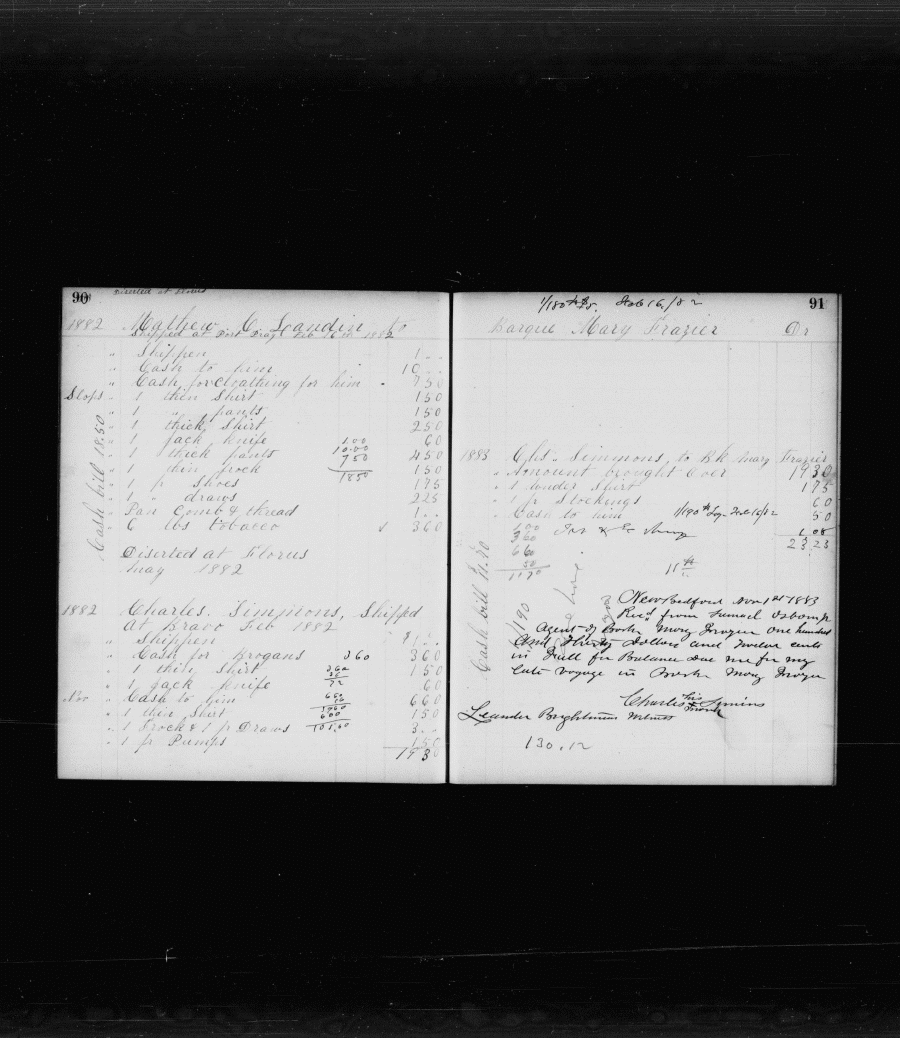 90
Diserted at Florus
1882 Mathew C. Landin to
Shipped at Feb 16th 1882
" Shippen 1 . .
" Cash to him 10 . .
" Cash for cloathing for him 7 50
Slops " 1 thin Shirt 1 50
" 1 " pants 1 50
" 1 thick Shirt 2 50
" 1 jack knife 60
" 1 thick pants 4 50
" 1 thin frock 1 50
" 1 pr Shoes 1 75
" 1 " draws 2 25
" Pan Comb & thread 1 . .
" 6 lbs tobacco 3 60
1.00
10.00
7 50
18 50
Cash bill 18.50
Diserted at Florus
May 1882
1882 Charles. Simmons, Shipped
At Bravo Feb 1882
" Shippen 1 . .
" Cash for Brogans 3 60 3 60
" 1 thin Shirt 1 50
" 1 Jack knife 60
Nov " Cash to him 6 60
" 1 thin Shirt 1 50
" 1 Frock & 1 pr Draws 3 . .
" 1 pr Pumps 1 50
19 30
91
1/180th Feb 16/82
Barque Mary Frazier Dr
1883 Chs. Simmons, to Bk Mary Frazier
" Amount brought Over 19 30
" 1 under Shirt 1 75
" 1 pr Stockings 60
" Cash to him 1/190th Lay Feb 16/82 50
1 08
23.23
1 00
3 60
6 60
50
11 70
Cash bill 11.70
1/190
New Bedford Nov 1st 1883
Recd from Samuel Osborn Jr
Agent of Bark Mary Frazier One hundred
And Thirty Dollars and Twelve cents
in Full for Balance due me for my
late voyage in Bark Mary Frazier
Charles his mark Simins
Leander Brightman Witness
130.12